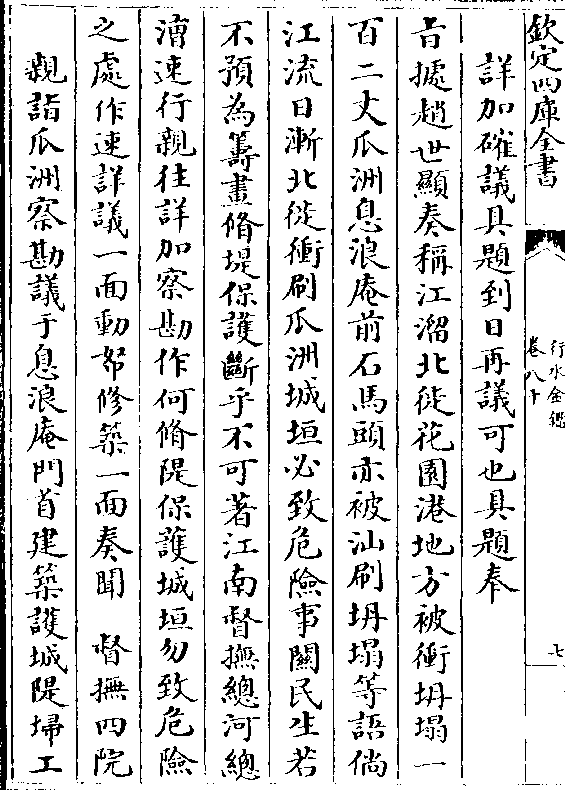 欽定四庫全書
行水金鑑
卷八十
七
詳加確議具題到日再議可也具題奉
旨據趙世顯奏稱江溜北徙花園港地方被衝坍塌一
百二丈瓜洲息浪庵前石馬頭亦被汕刷坍塌等語倘
江流日漸北徙衝刷瓜洲城垣必致危險事關民生若
不預為籌畫脩堤保護斷乎不可著江南督撫總河總
漕速行親往詳加察勘作何脩隄保護城垣勿致危險
之處作速詳議一面動帑修築一面奏聞 督撫四院
親詣瓜洲察勘議于息浪庵門首建築護城隄埽工